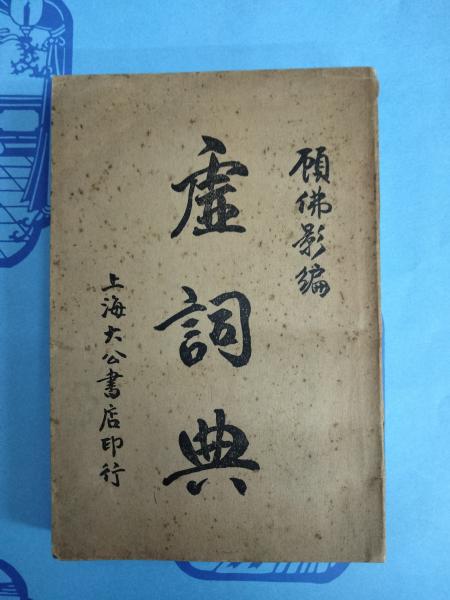 顾佛影编
虚詞典
上海大公書店印行